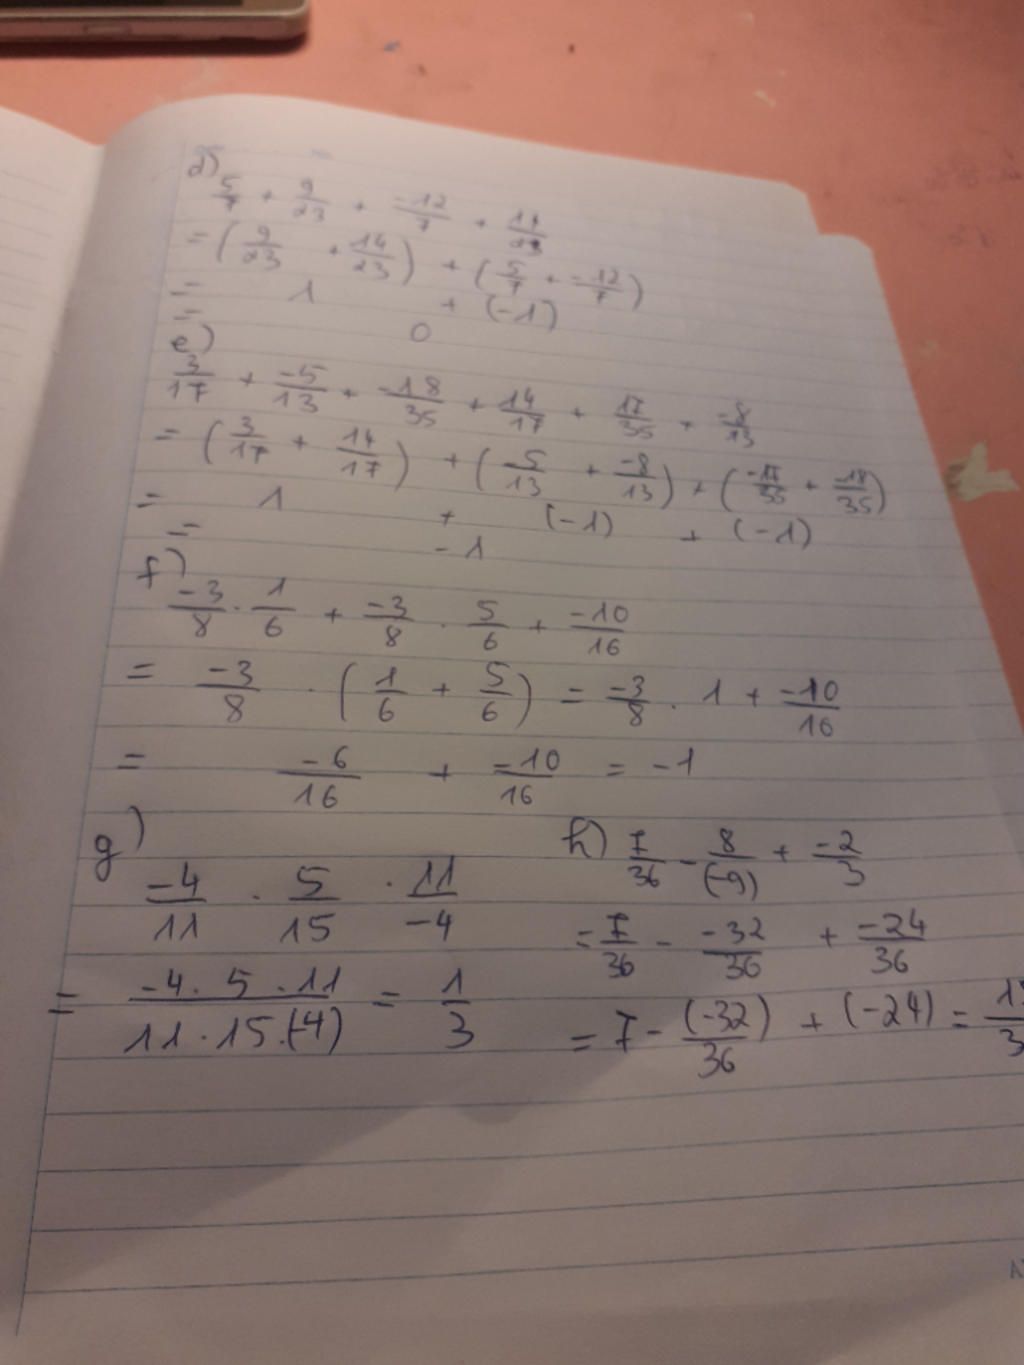 d)
5/7 + 9/23 + -12/7 + 14/23
= (9/23 + 14/23) + (5/7 + -12/7)
= 1 + (-1)
= 0
e)
3/17 + -5/13 + -18/35 + 14/17 + 17/35 + -8/13
= (3/17 + 14/17) + (5/13 + -8/13) + (-17/35 + -18/35)
= 1 + (-1) + (-1)
= -1
f)
-3/8 . 1/6 + -3/8 . 5/6 + -10/16
= -3/8 . (1/6 + 5/6) = -3/8 . 1 + -10/16
= -6/16 + -10/16 = -1
g)
-4/11 . 5/15 . 11/-4
= -4. 5 .11/11.15.(-4) = 1/3
h) 7/36 - 8/(-9) + -2/3
= 7/36 - -32/36 + -24/36
= 7 - (-32) + (-24)/36 =